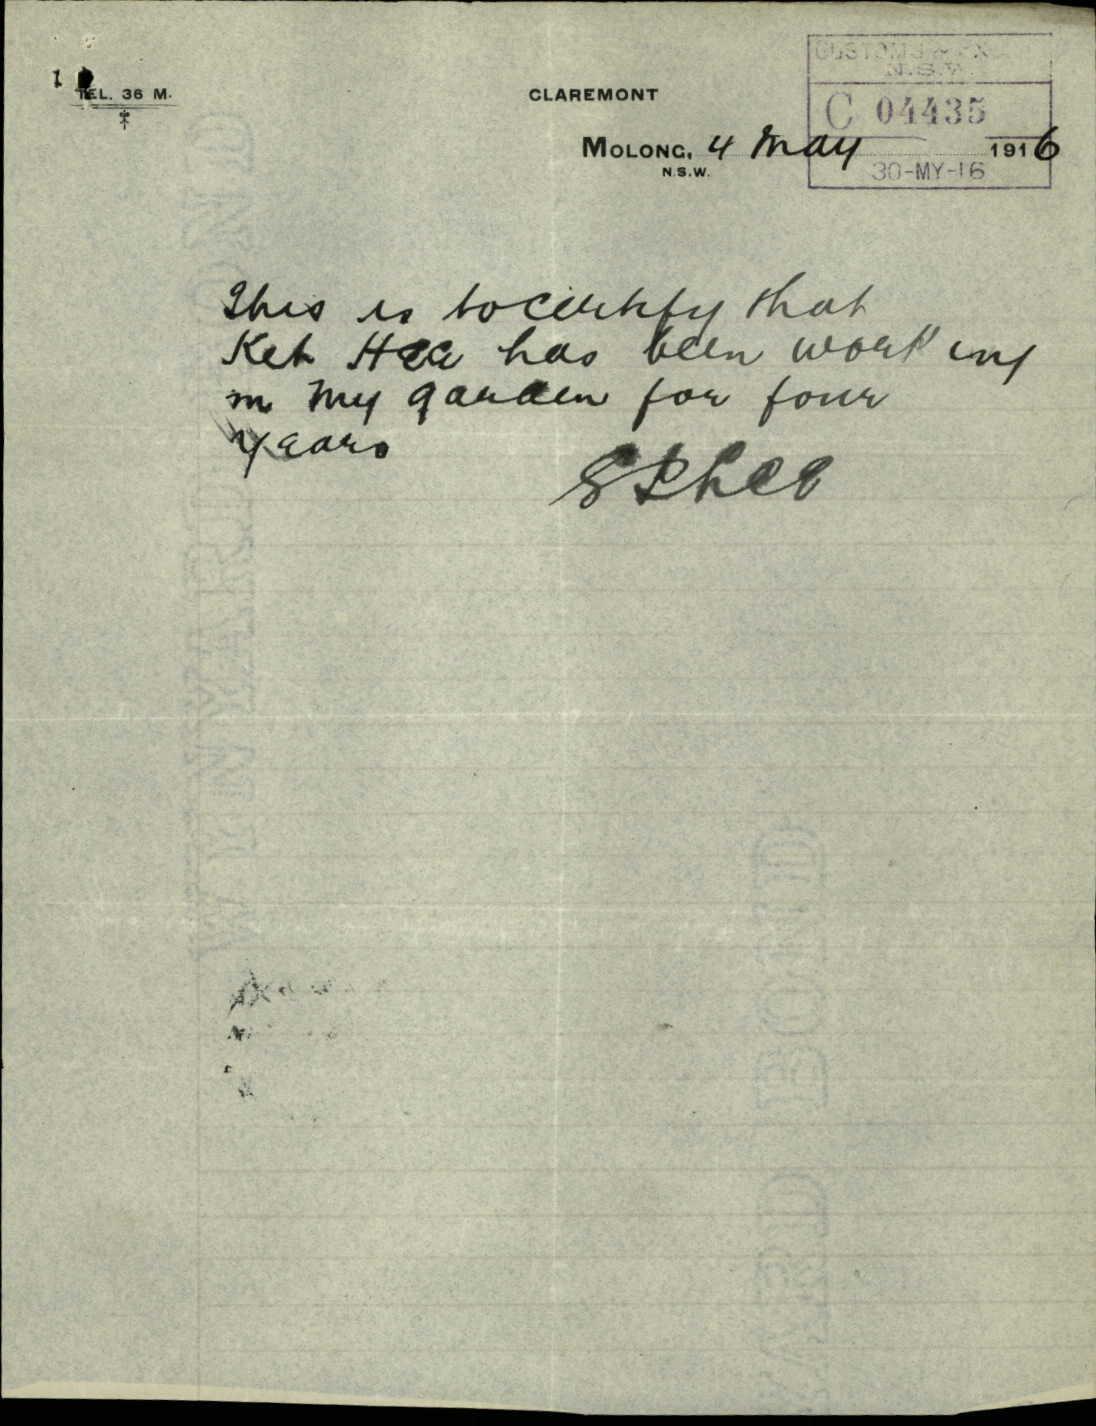 TEL. 36 M.
CLAREMONT
CUSTOMS & EX
N.S.W.
C 04435
MOLONG, 4 May 1916
N.S.W.
30-MY-16
This is to certify that
Ket Hee has been working
in my garden for four
years